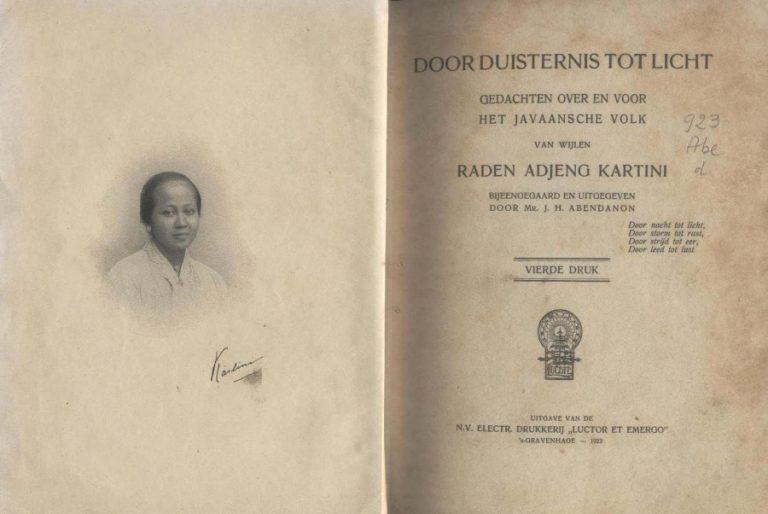 Kartini
DOOR DUISTERNIS TOT LICHT
GEDACHTEN OVER EN VOOR
HET JAVAANSCHE VOLK
VAN WIJLEN
RADEN ADJENG KARTINI
BIJEENGEGAARD EN UITGEGEVEN
DOOR MR. J. H. ABENDANON
923
Abe
d
Door nacht tot licht,
Door storm tot rust,
Door strijd tot eer,
Door leed tot lust
VIERDE DRUK
LUCTOR
UITGAVE VAN DE
N.V. ELECTR. DRUKKERIJ „LUCTOR ET EMERGO"
'S-GRAVENHAGE — 1923